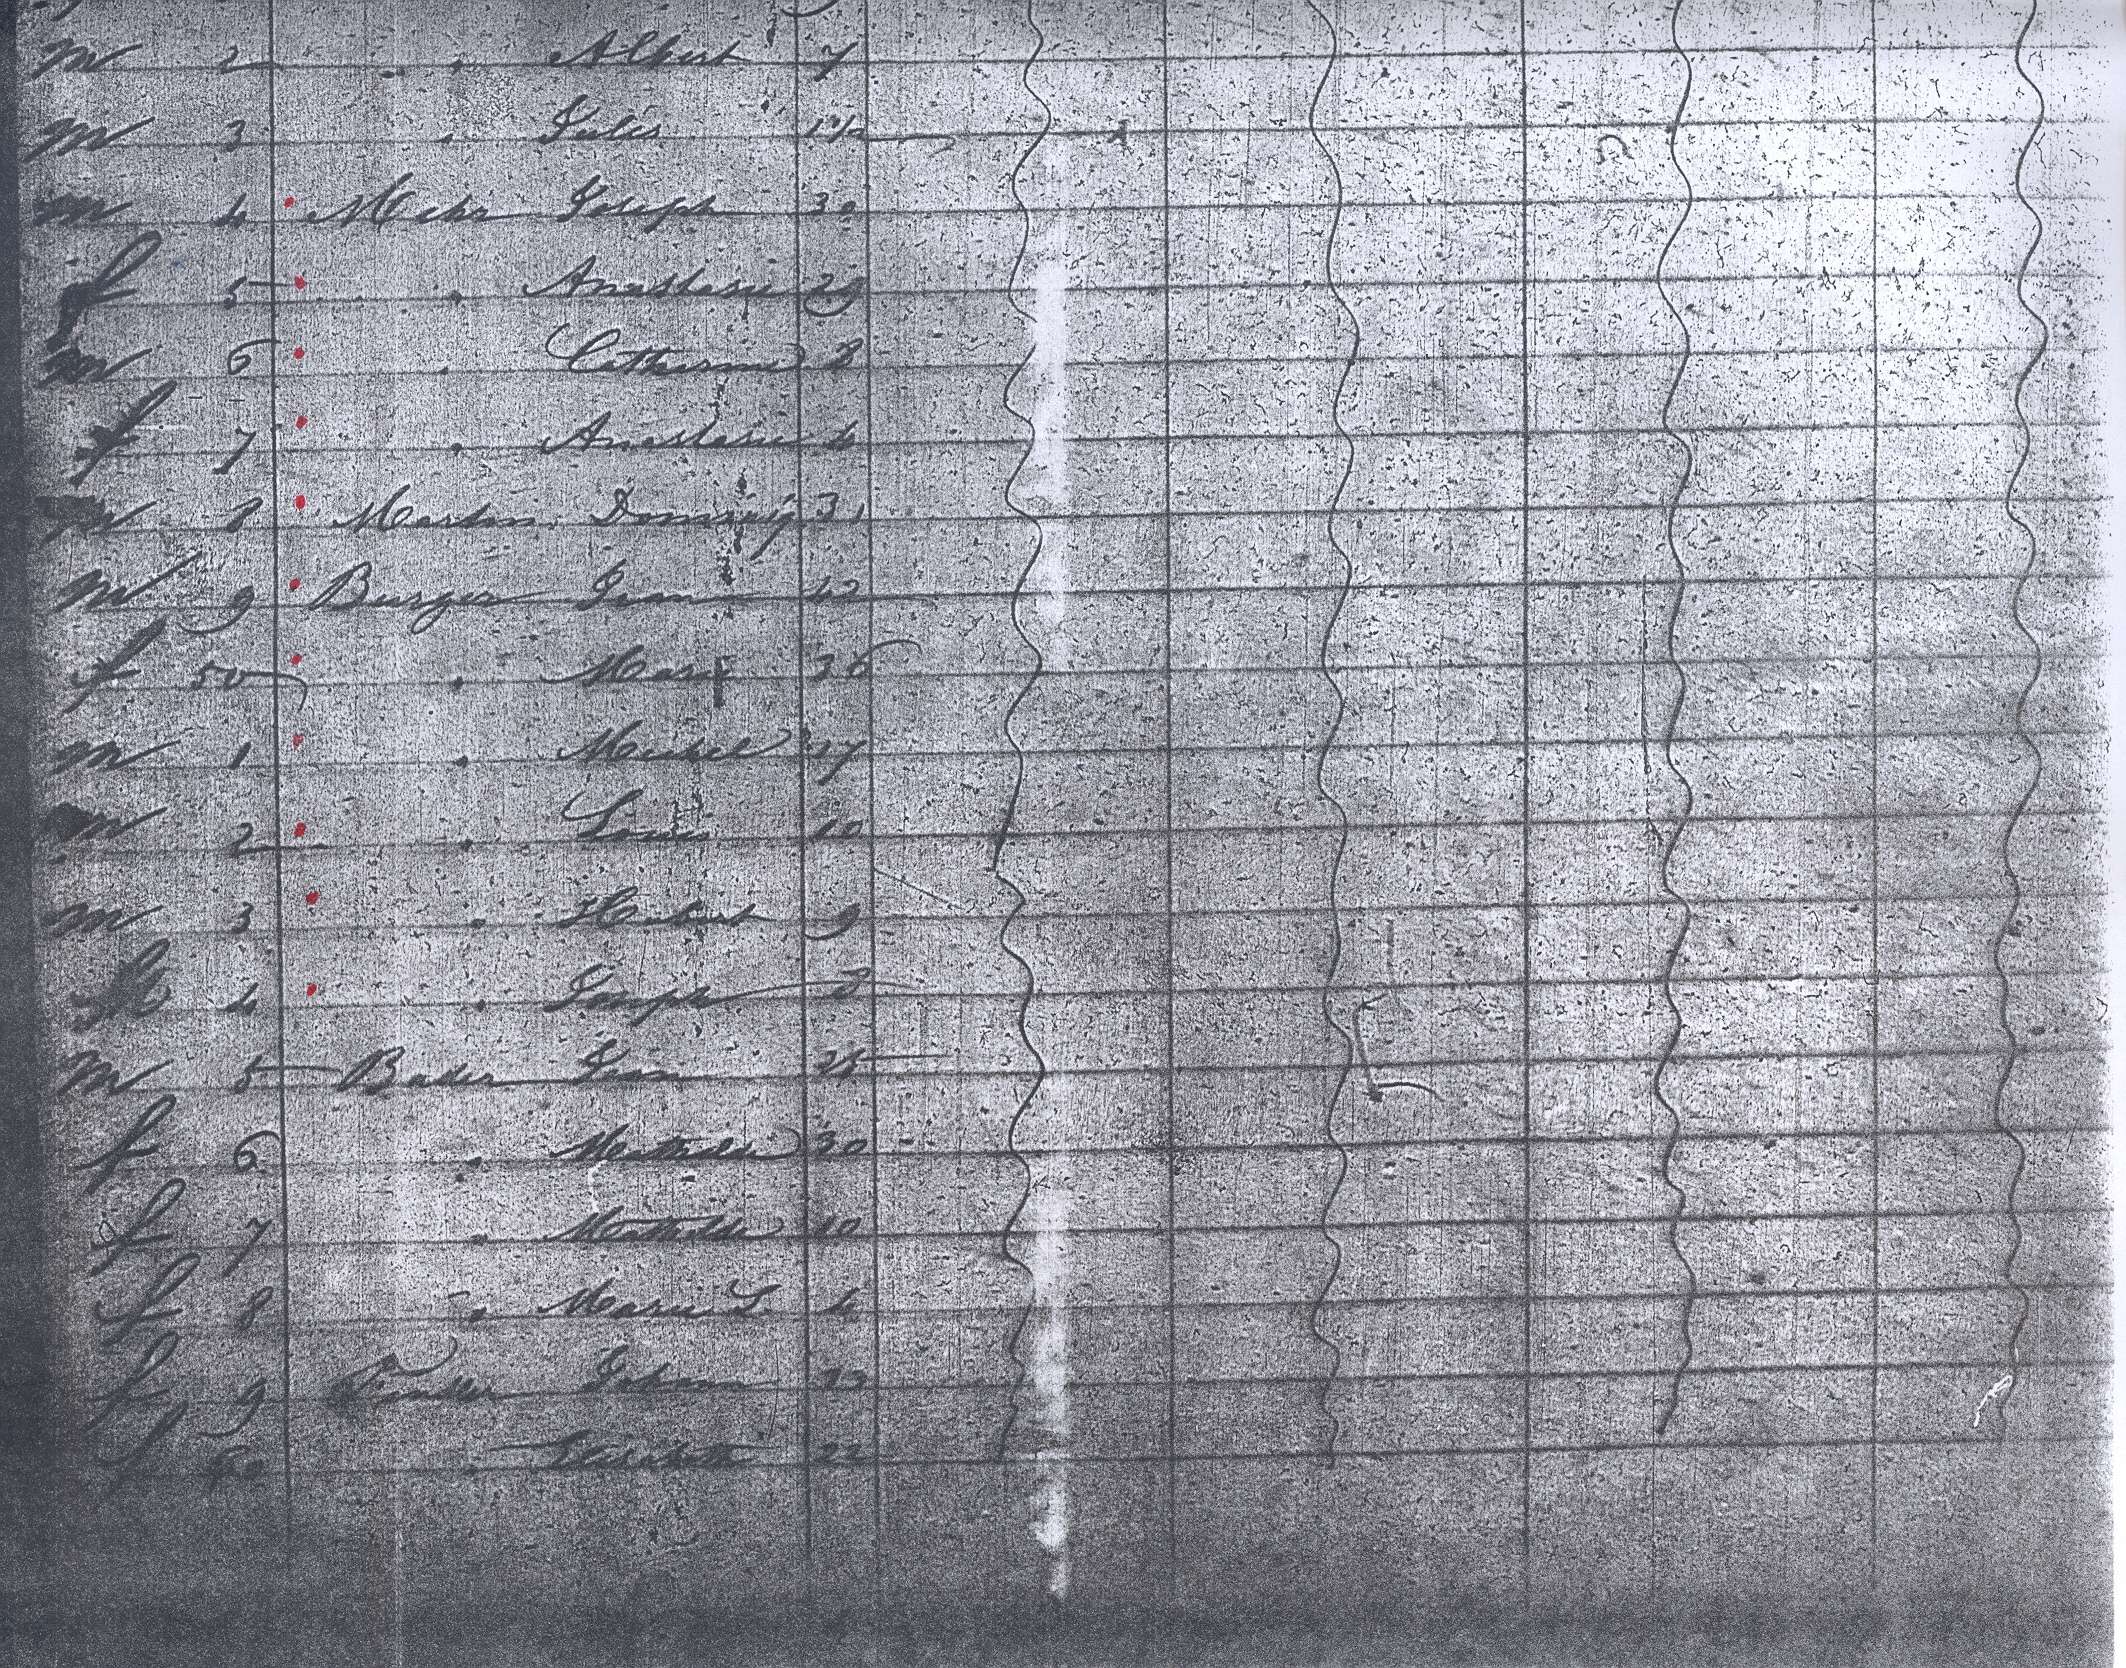 m 2 " " Albert 7
m 3 " Jules 1 1/2
m 4 Mehr Joseph 30
f 5 " " Anastasie 29
m 6 " Catherine 8
f 7 " Anastasie 4
m 8 Martin
m 9 Burger Jean 42
f 50 " Marie 36
m 1 " Michel 17
m 2 " Louis 10
m 3 " Hubert 9
m 4 " Joseph 8
m 5 Bader Jean
f 6 " Mathilde 30
f 7 " Mathilde 10
f 8 " Marie L 4
f 9
f 60 " Elisabeth 22